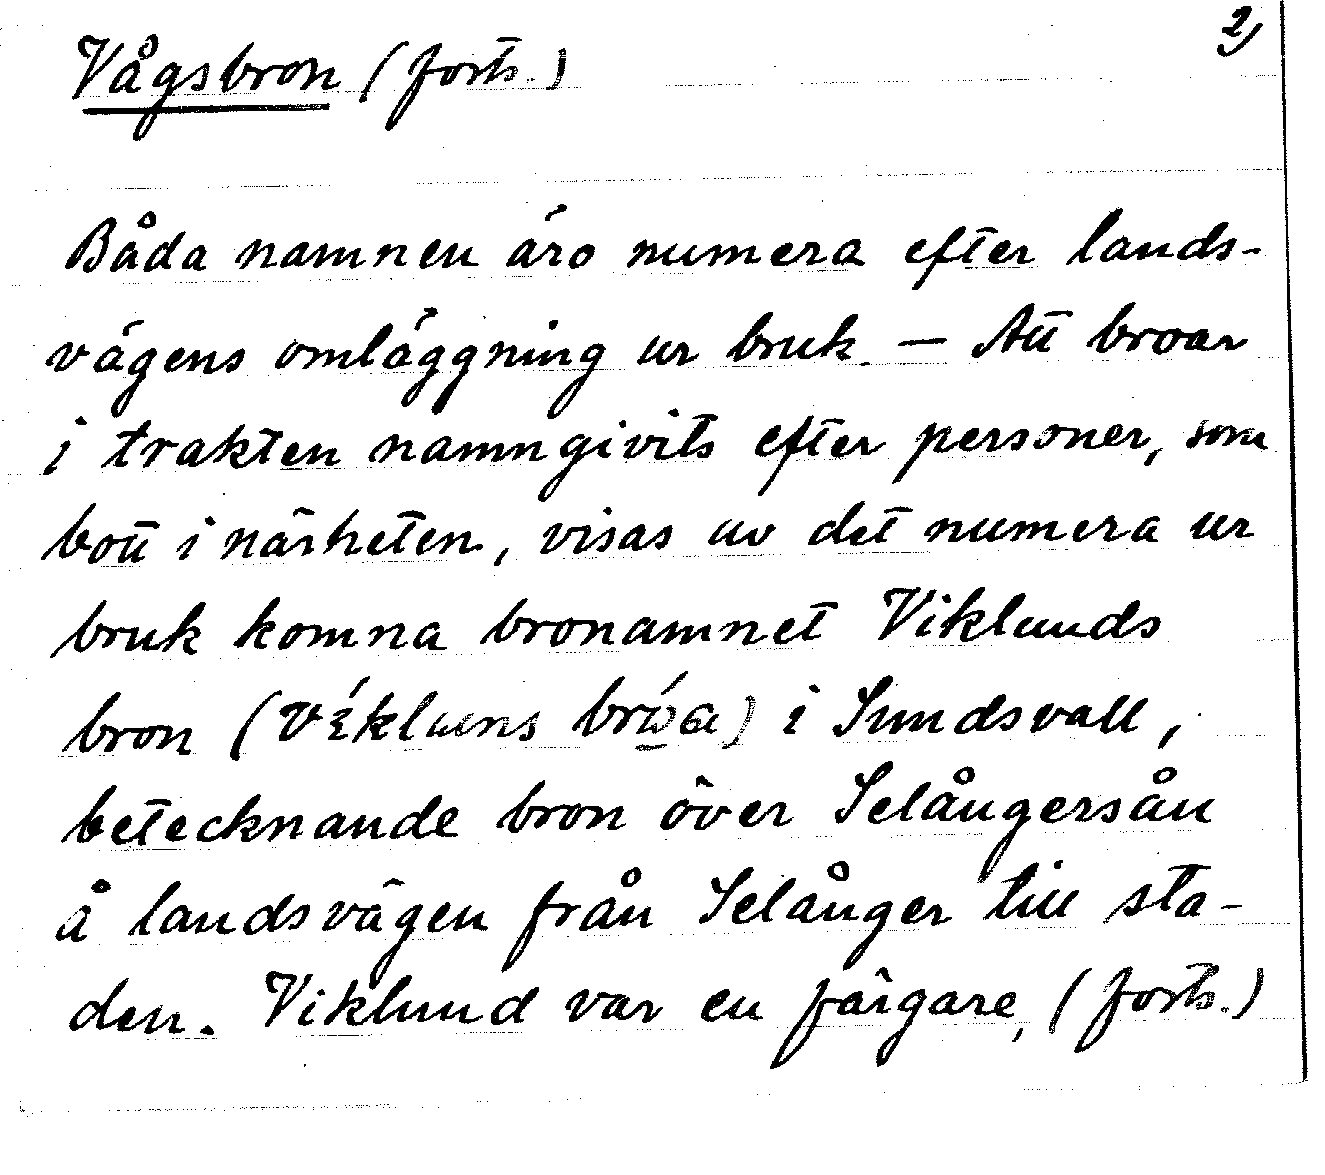 2)
Vågsbron (forts.)
Båda namnen äro numera efter lands-
vägens omläggning ur bruk. — Att broar
i trakten namngivits efter personer, som
bott i närheten, visas av det numera ur
bruk komna bronamnet Viklunds
bron (víkluns brώ̲a) i Sundsvall,
betecknande bron över Selångersån
å landsvägen från Selånger till sta-
den. Viklund var en färgare, (forts.)